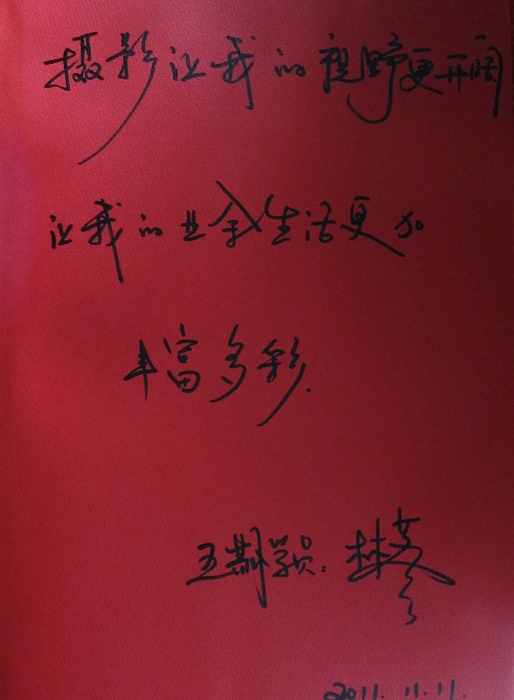 摄影让我的视野更开阔
让我的业余生活更加
丰富多彩.
五期学员: 林
2011.11.11.